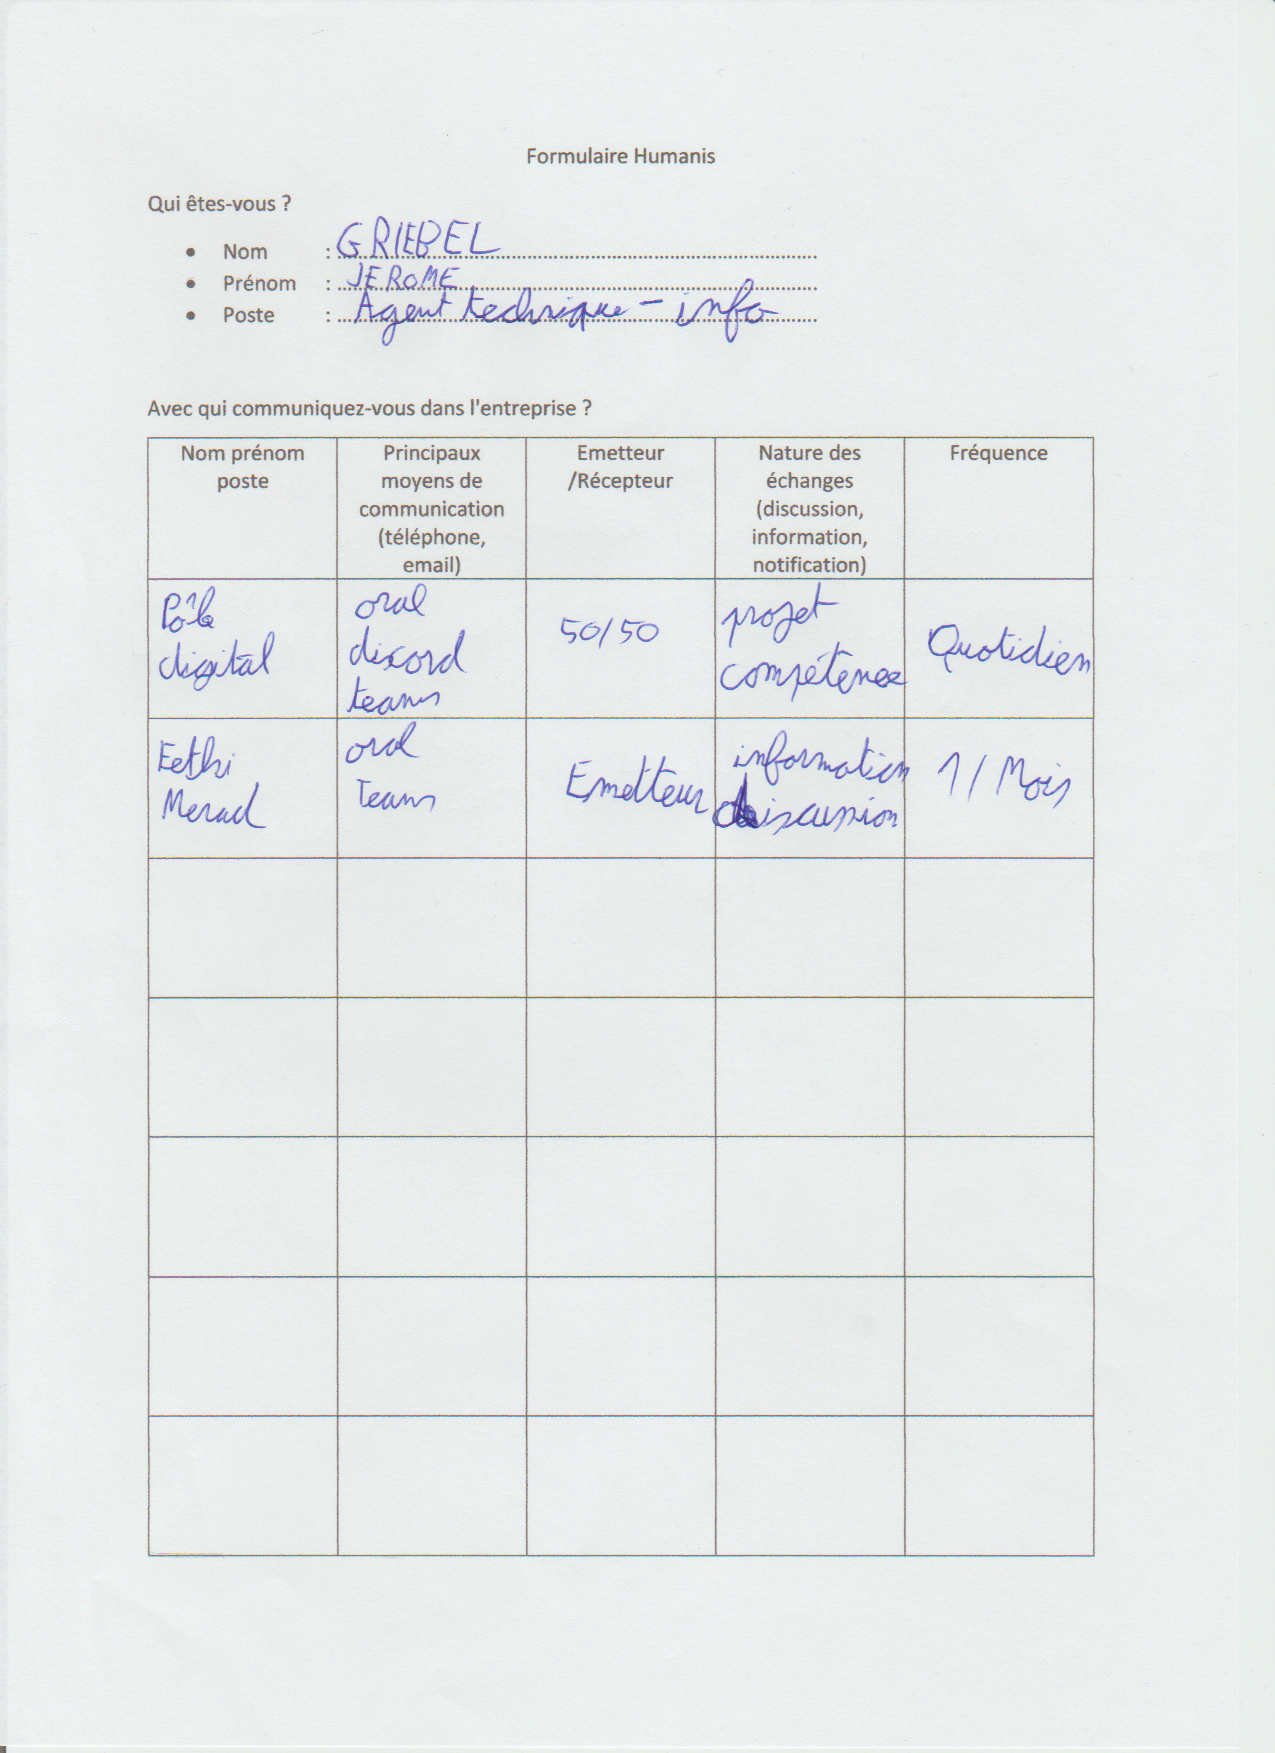 Formulaire Humanis
Qui êtes-vous ?
• Nom : GRIEBEL
• Prénom : JEROME
• Poste : Agent technique - info
Avec qui communiquez-vous dans l'entreprise ?
Nom prénom
poste
Principaux
moyens de
communication
(téléphone,
email)
Emetteur
/Récepteur
Nature des
échanges
(discussion,
information,
notification)
Fréquence
Pôle
digital
oral
discord
teams
50/50
projet
compétence
Quotidien
Merad
oral
Teams
Emetteur
information
discussion
1 / Mois